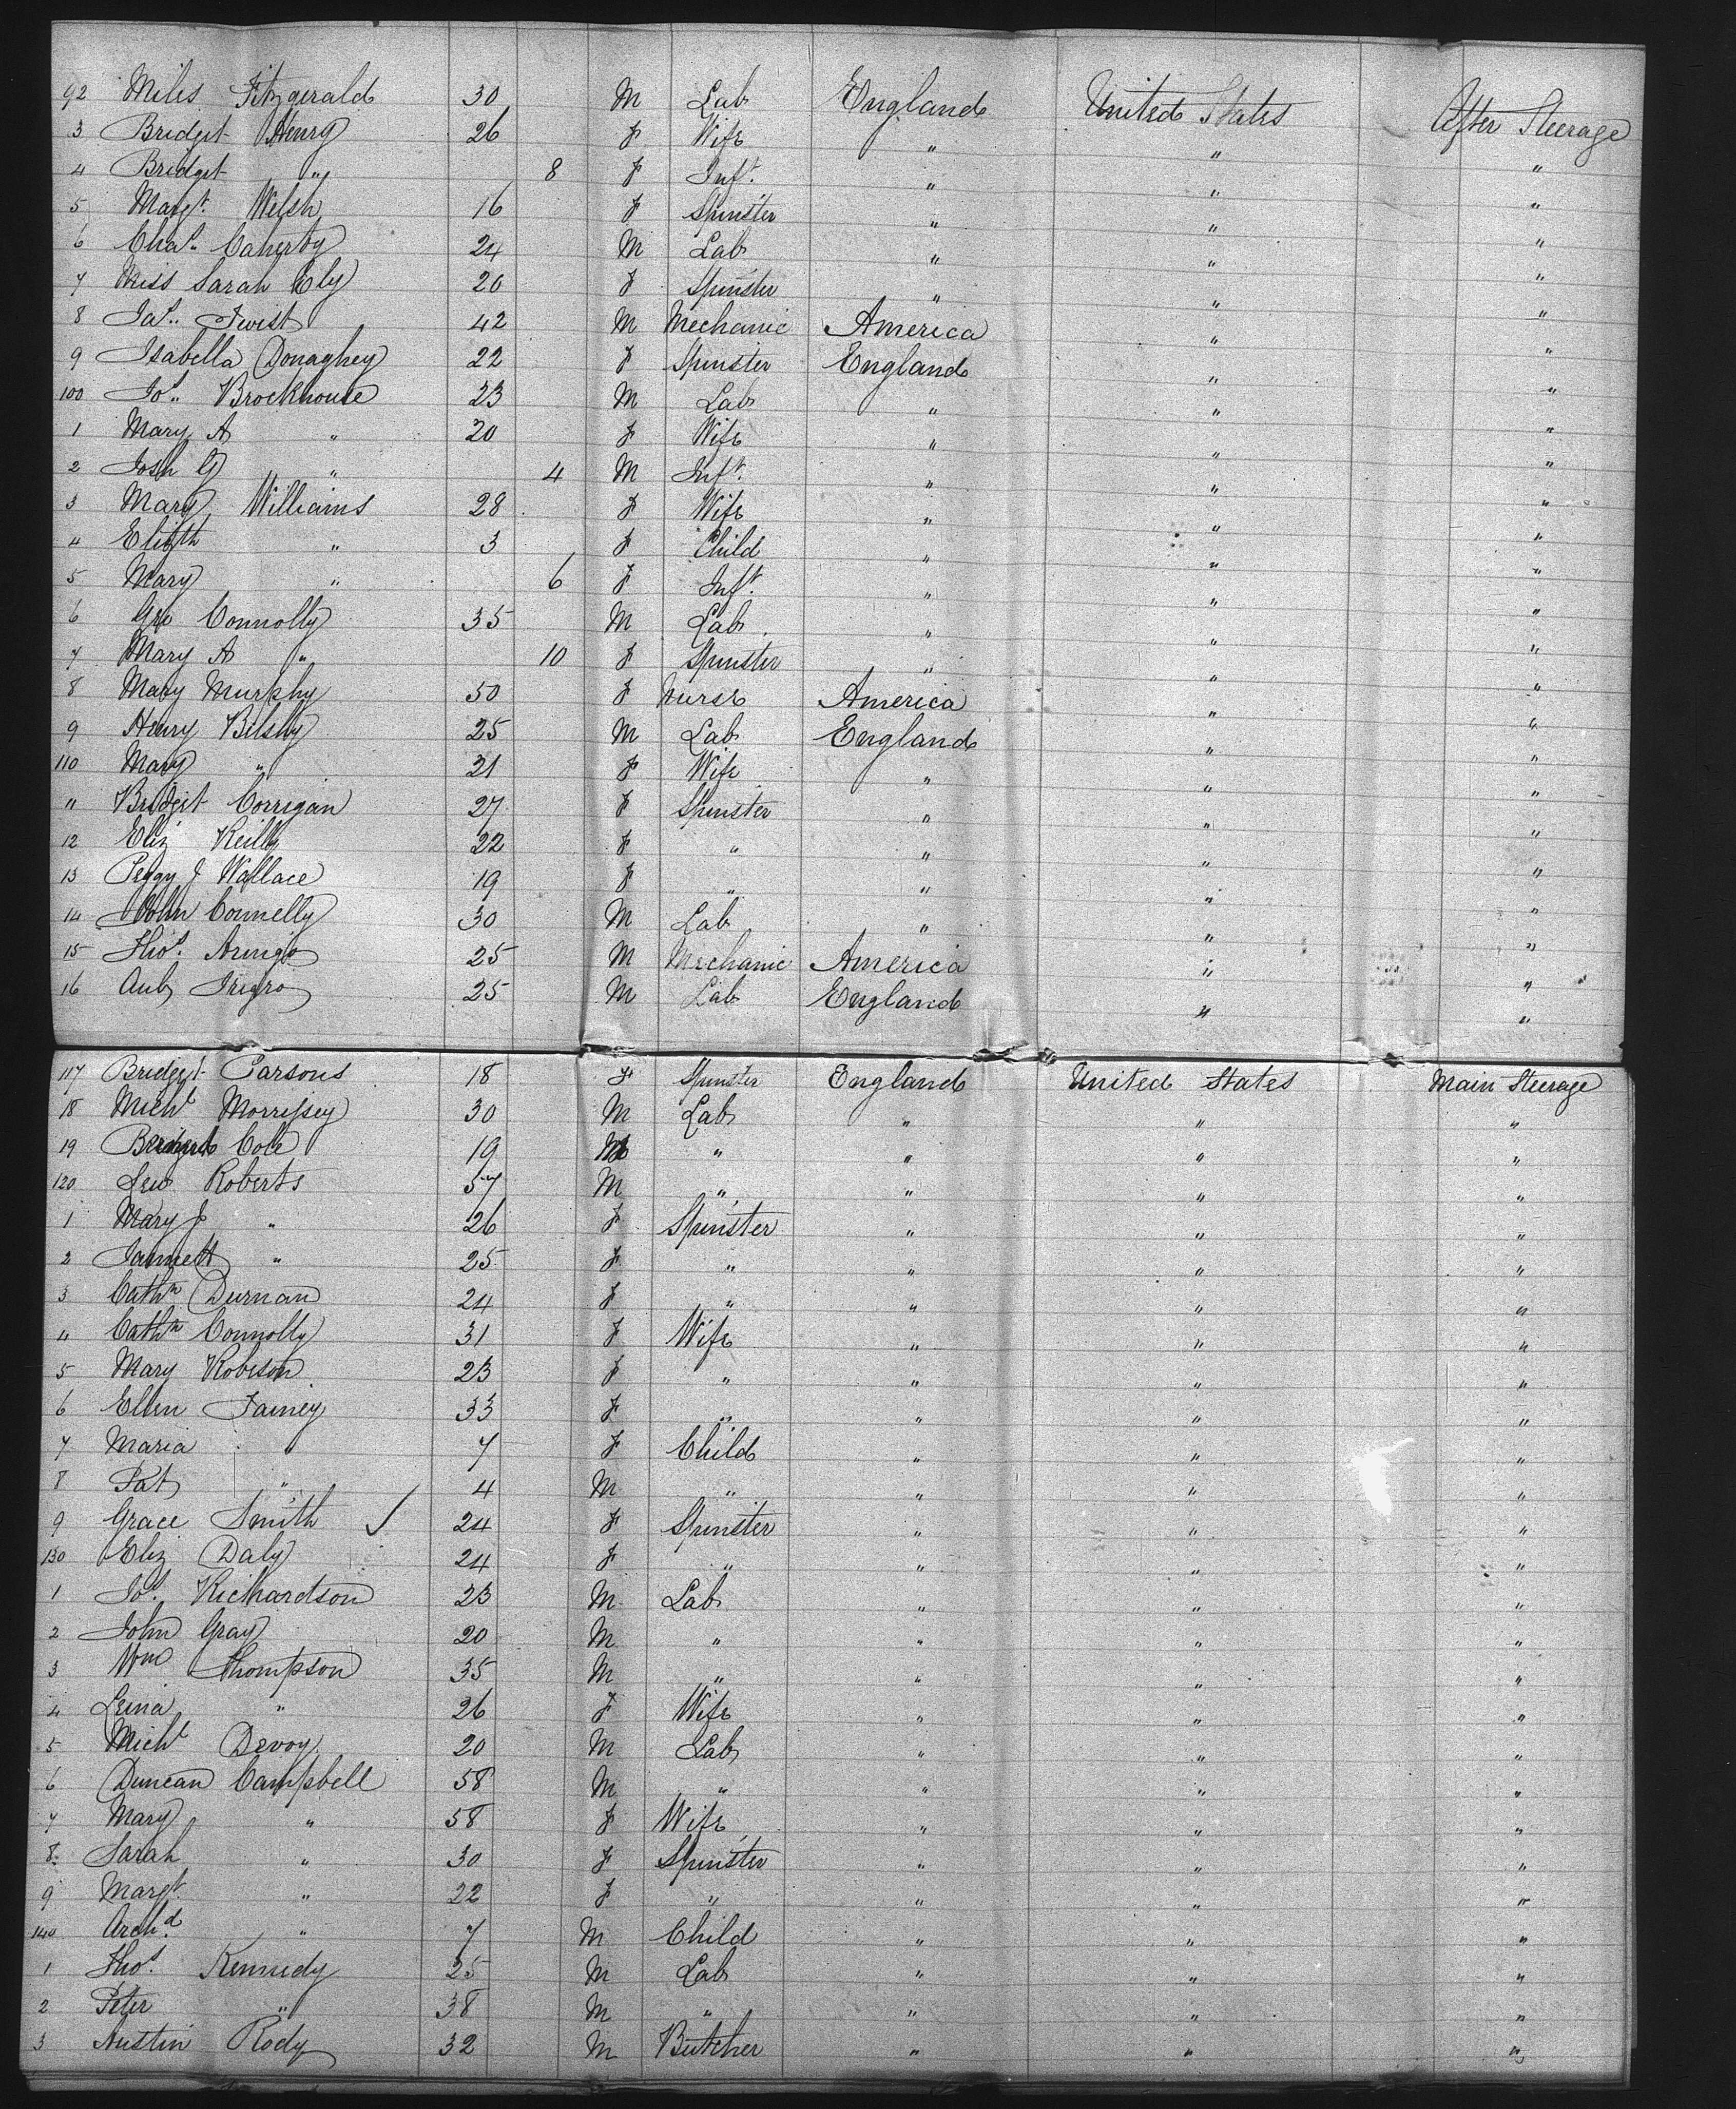 92 Miles Fitzgerald 30 M Lab England United States After Steerage
3 Bridget Henry 26 F Wife " " "
4 Bridget " 8 F Inft. " " "
5 Margt. Welsh 16 F Spinster " " "
6 Chas. Caherty 24 M Lab " " "
7 Miss Sarah Ely 20 F Spinster " " "
8 Jas. Twist 42 M Mechanic America " "
9 Isabella Donaghey 22 F Spinster England " "
100 Jos. Brockhouse 23 M Lab " " "
1 Mary A " 20 F Wife " " "
2 Josh G " 4 M Inft. " " "
3 Mary Williams 28 F Wife " " "
4 Elizth " 3 F Child " " "
5 Mary " 6 F Inft. " " "
6 Geo Connolly 35 M Lab " " "
7 Mary A " 10 F Spinster " " "
8 Mary Murphy 50 F Nurse America " "
9 Henry Bilsby 25 M Lab England " "
110 Mary " 21 F Wife " " "
11 Bridget Corrigan 27 F Spinster " " "
12 Eliz Reilly 22 F " " " "
13 Peggy J Wallace 19 F " " " "
14 John Connelly 30 M Lab " " "
15 Thos. 25 M Mechanic America " "
16 25 M Lab England " "
117 Bridget Parsons 18 F Spinster England United States Main Steerage
18 Michl Morrissey 30 M Lab " " "
19 Cole 19 M " " " "
120 Lew Roberts 57 M " " " "
1 Mary J " 26 F Spinster " " "
2 " 25 F " " " "
3 Cathn Durnan 24 F " " " "
4 Cathn Connolly 31 F Wife " " "
5 Mary Robeson 23 F " " " "
6 Ellen Fainey 33 F " " " "
7 Maria " 7 F Child " " "
8 Pat " 4 M " " " "
9 Grace Smith ✓ 24 F Spinster " " "
130 Eliz Daly 24 F " " " "
1 Jos. Richardson 23 M Lab " " "
2 John Gray 20 M " " " "
3 Wm Thompson 35 M " " " "
4 Lena " 26 F Wife " " "
5 Michl Devoy 20 M Lab " " "
6 Duncan Campbell 58 M " " " "
7 Mary " 58 F Wife " " "
8 Sarah " 30 F Spinster " " "
9 Margt. " 22 F " " " "
140 Archd. " 7 M Child " " "
1 Thos. Kennedy 25 M Lab " " "
2 Peter " 38 M " " " "
3 Austin Rody 32 M Butcher " " "